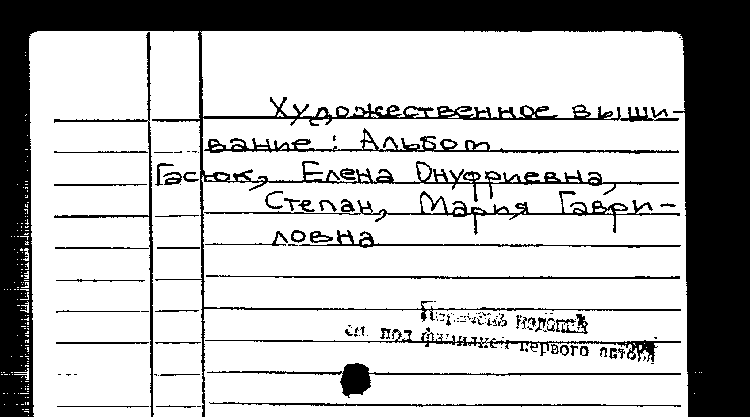 Художественное выши-
вание : Альбом
Гасюк, Елена Онуфриевна,
Степан, Мария Гаври-
ловна
Перечень изданий
см. под фамилией первого автора